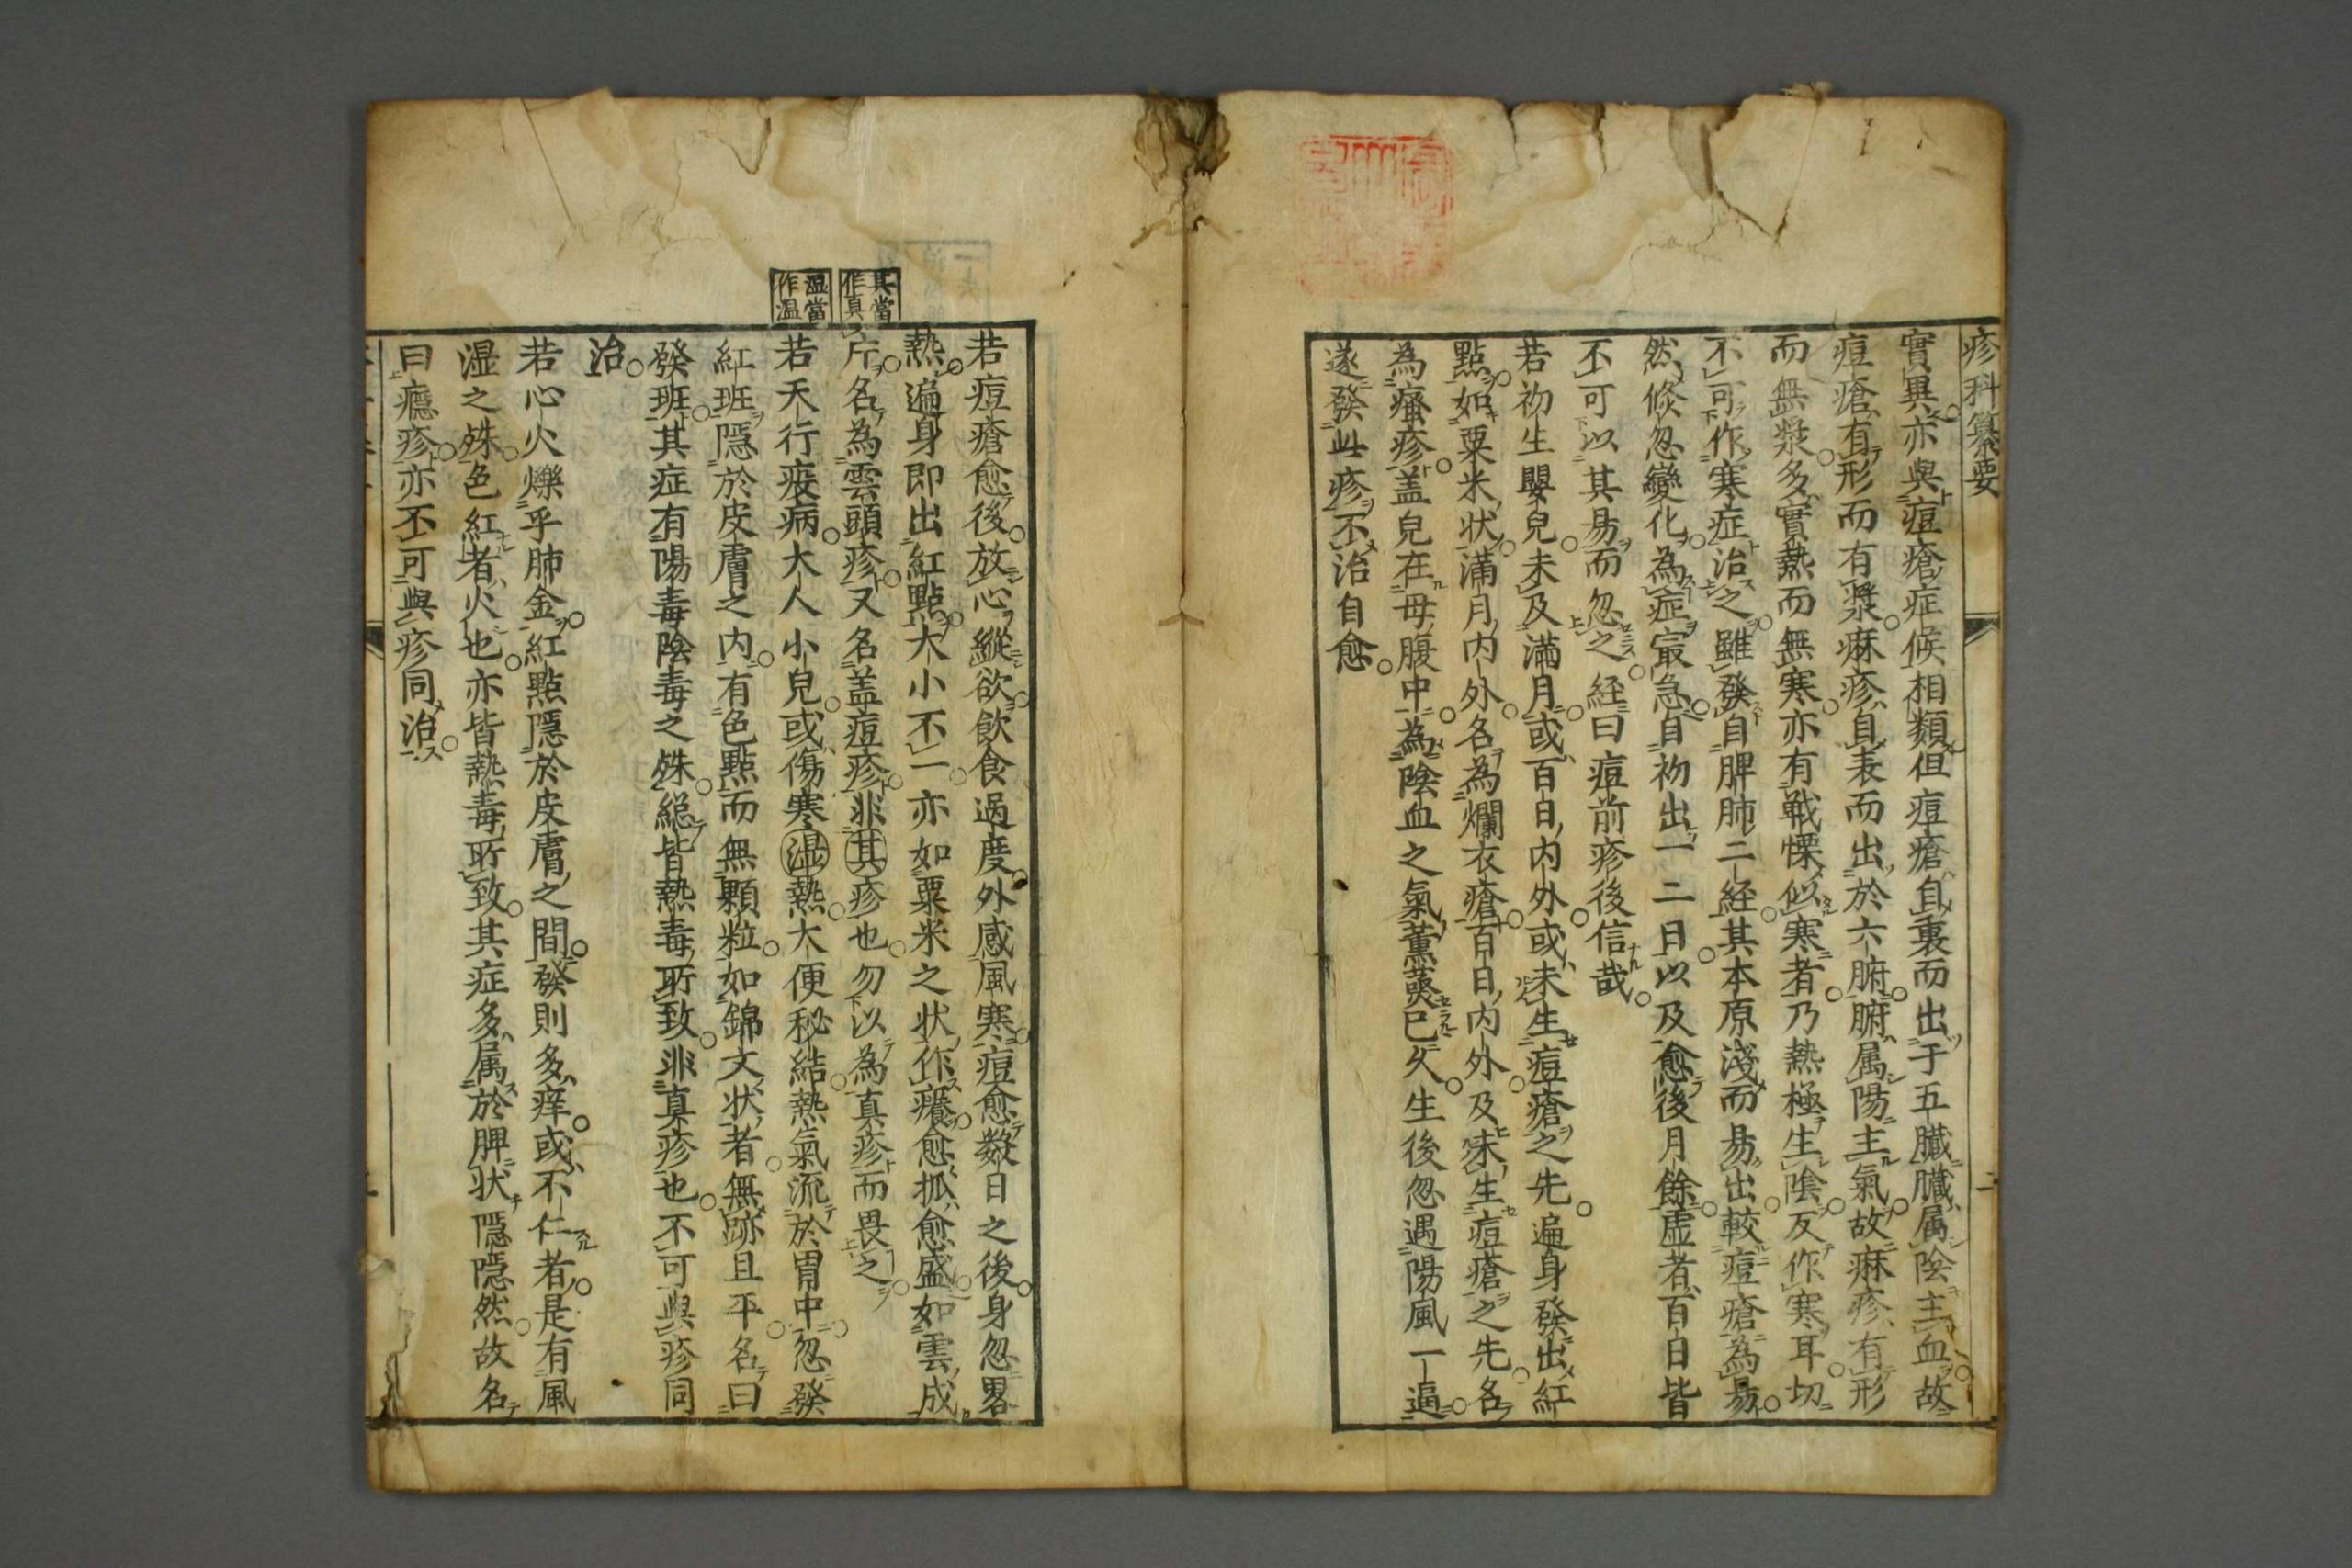 疹科纂要
實異亦與痘瘡症候相類但痘瘡自裏而出于五臓臓属陰主血故
痘瘡有形而有漿麻疹自表而出於六腑腑属陽主氣故麻疹有形
而無漿多實熱而無寒亦有戰慄似寒者乃熱極生陰反作寒耳切
不可作寒症治之雖發自脾肺二経其本原淺而易出較痘瘡為易
然倏忽變化為症㝡急自初出一二日以及愈後月餘虚者百日皆
不可以其易而忽之経曰痘前疹後信哉
若初生嬰兒未及滿月或百日内外或未生痘瘡之先遍身發出紅
點如粟米状滿月内外名為爛衣瘡百日内外及未生痘瘡之先名
為瘙疹盖兒在母腹中為陰血之氣薰蒸已久生後忽遇陽風一逼
遂發此疹不治自愈
二
其當
作真
濕當
作温
若痘瘡愈後放心縱欲飲食過度外感風寒痘愈数日之後身忽畧
熱遍身即出紅點大小不一亦如粟米之状作癢愈抓愈盛如雲成
片名為雲頭疹又名盖痘疹非其疹也勿以為真疹而畏之
若天行疫病大人小兒或傷寒湿熱大便秘結熱氣流於胃中忽發
紅班隠於皮膚之内有色點而無顆粒如錦文状者無跡且平名曰
發班其症有陽毒陰毒之殊総皆熱毒所致非真疹也不可與疹同
治
若心火爍乎肺金紅點隠於皮膚之間發則多痒或不仁者是有風
湿之殊色紅者火也亦皆熱毒所致其症多属於脾状隠隠然故名
曰癮疹亦不可與疹同治